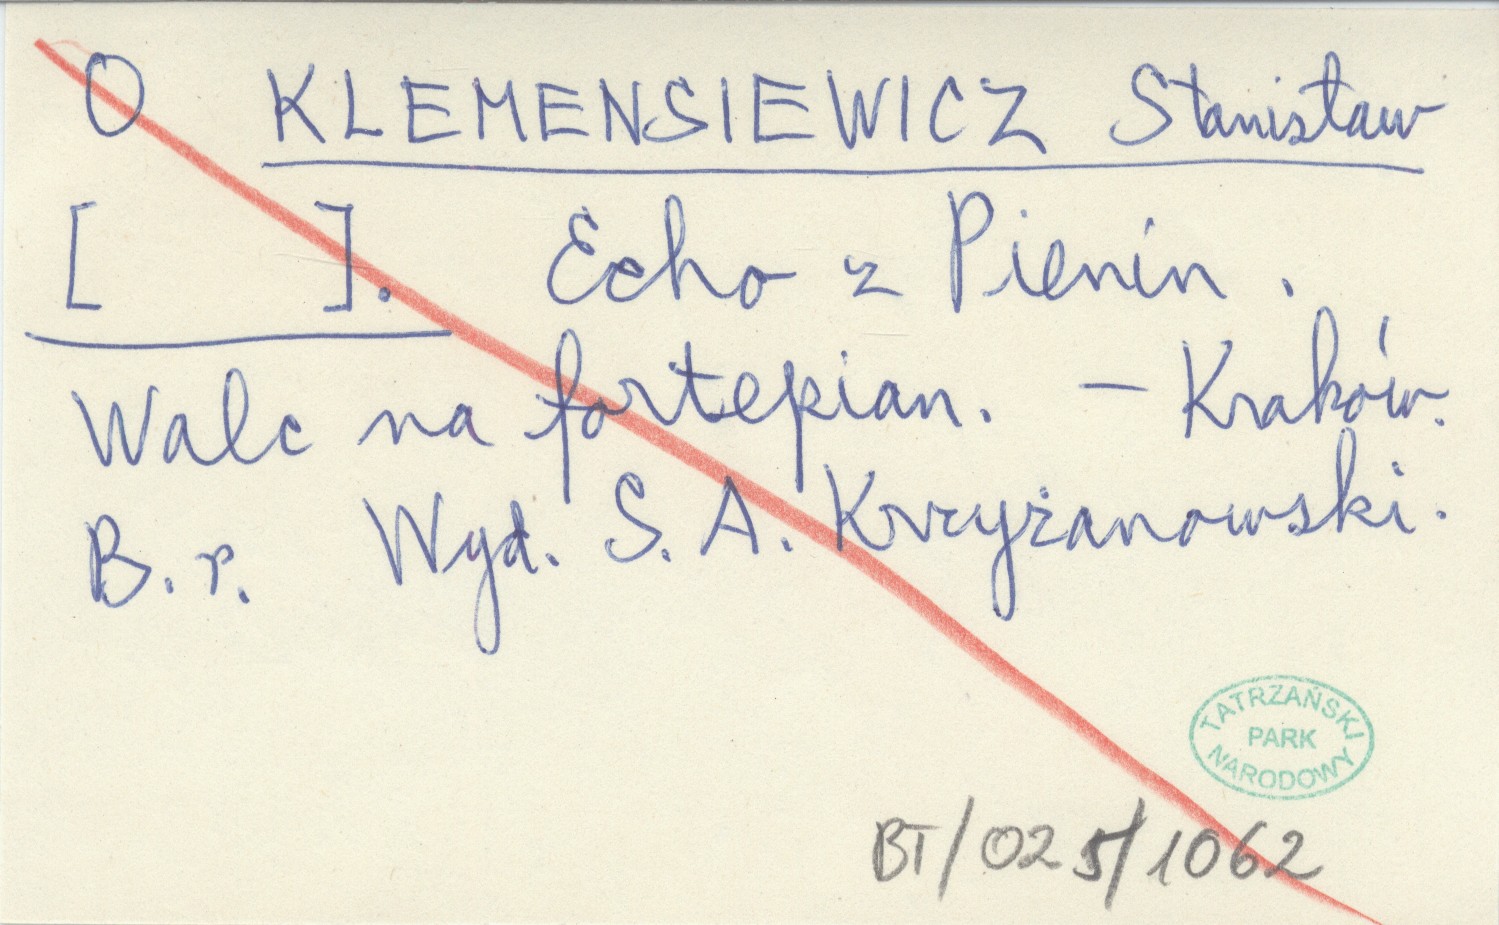 O KLEMENSIEWICZ Stanisław
[ ]. Echo z Pienin.
Walc na fortepian. – Kraków.
B.r. Wyd. S. A. Krzyżanowski.
TATRZAŃSKI
PARK
NARODOWY
BT/025/1062